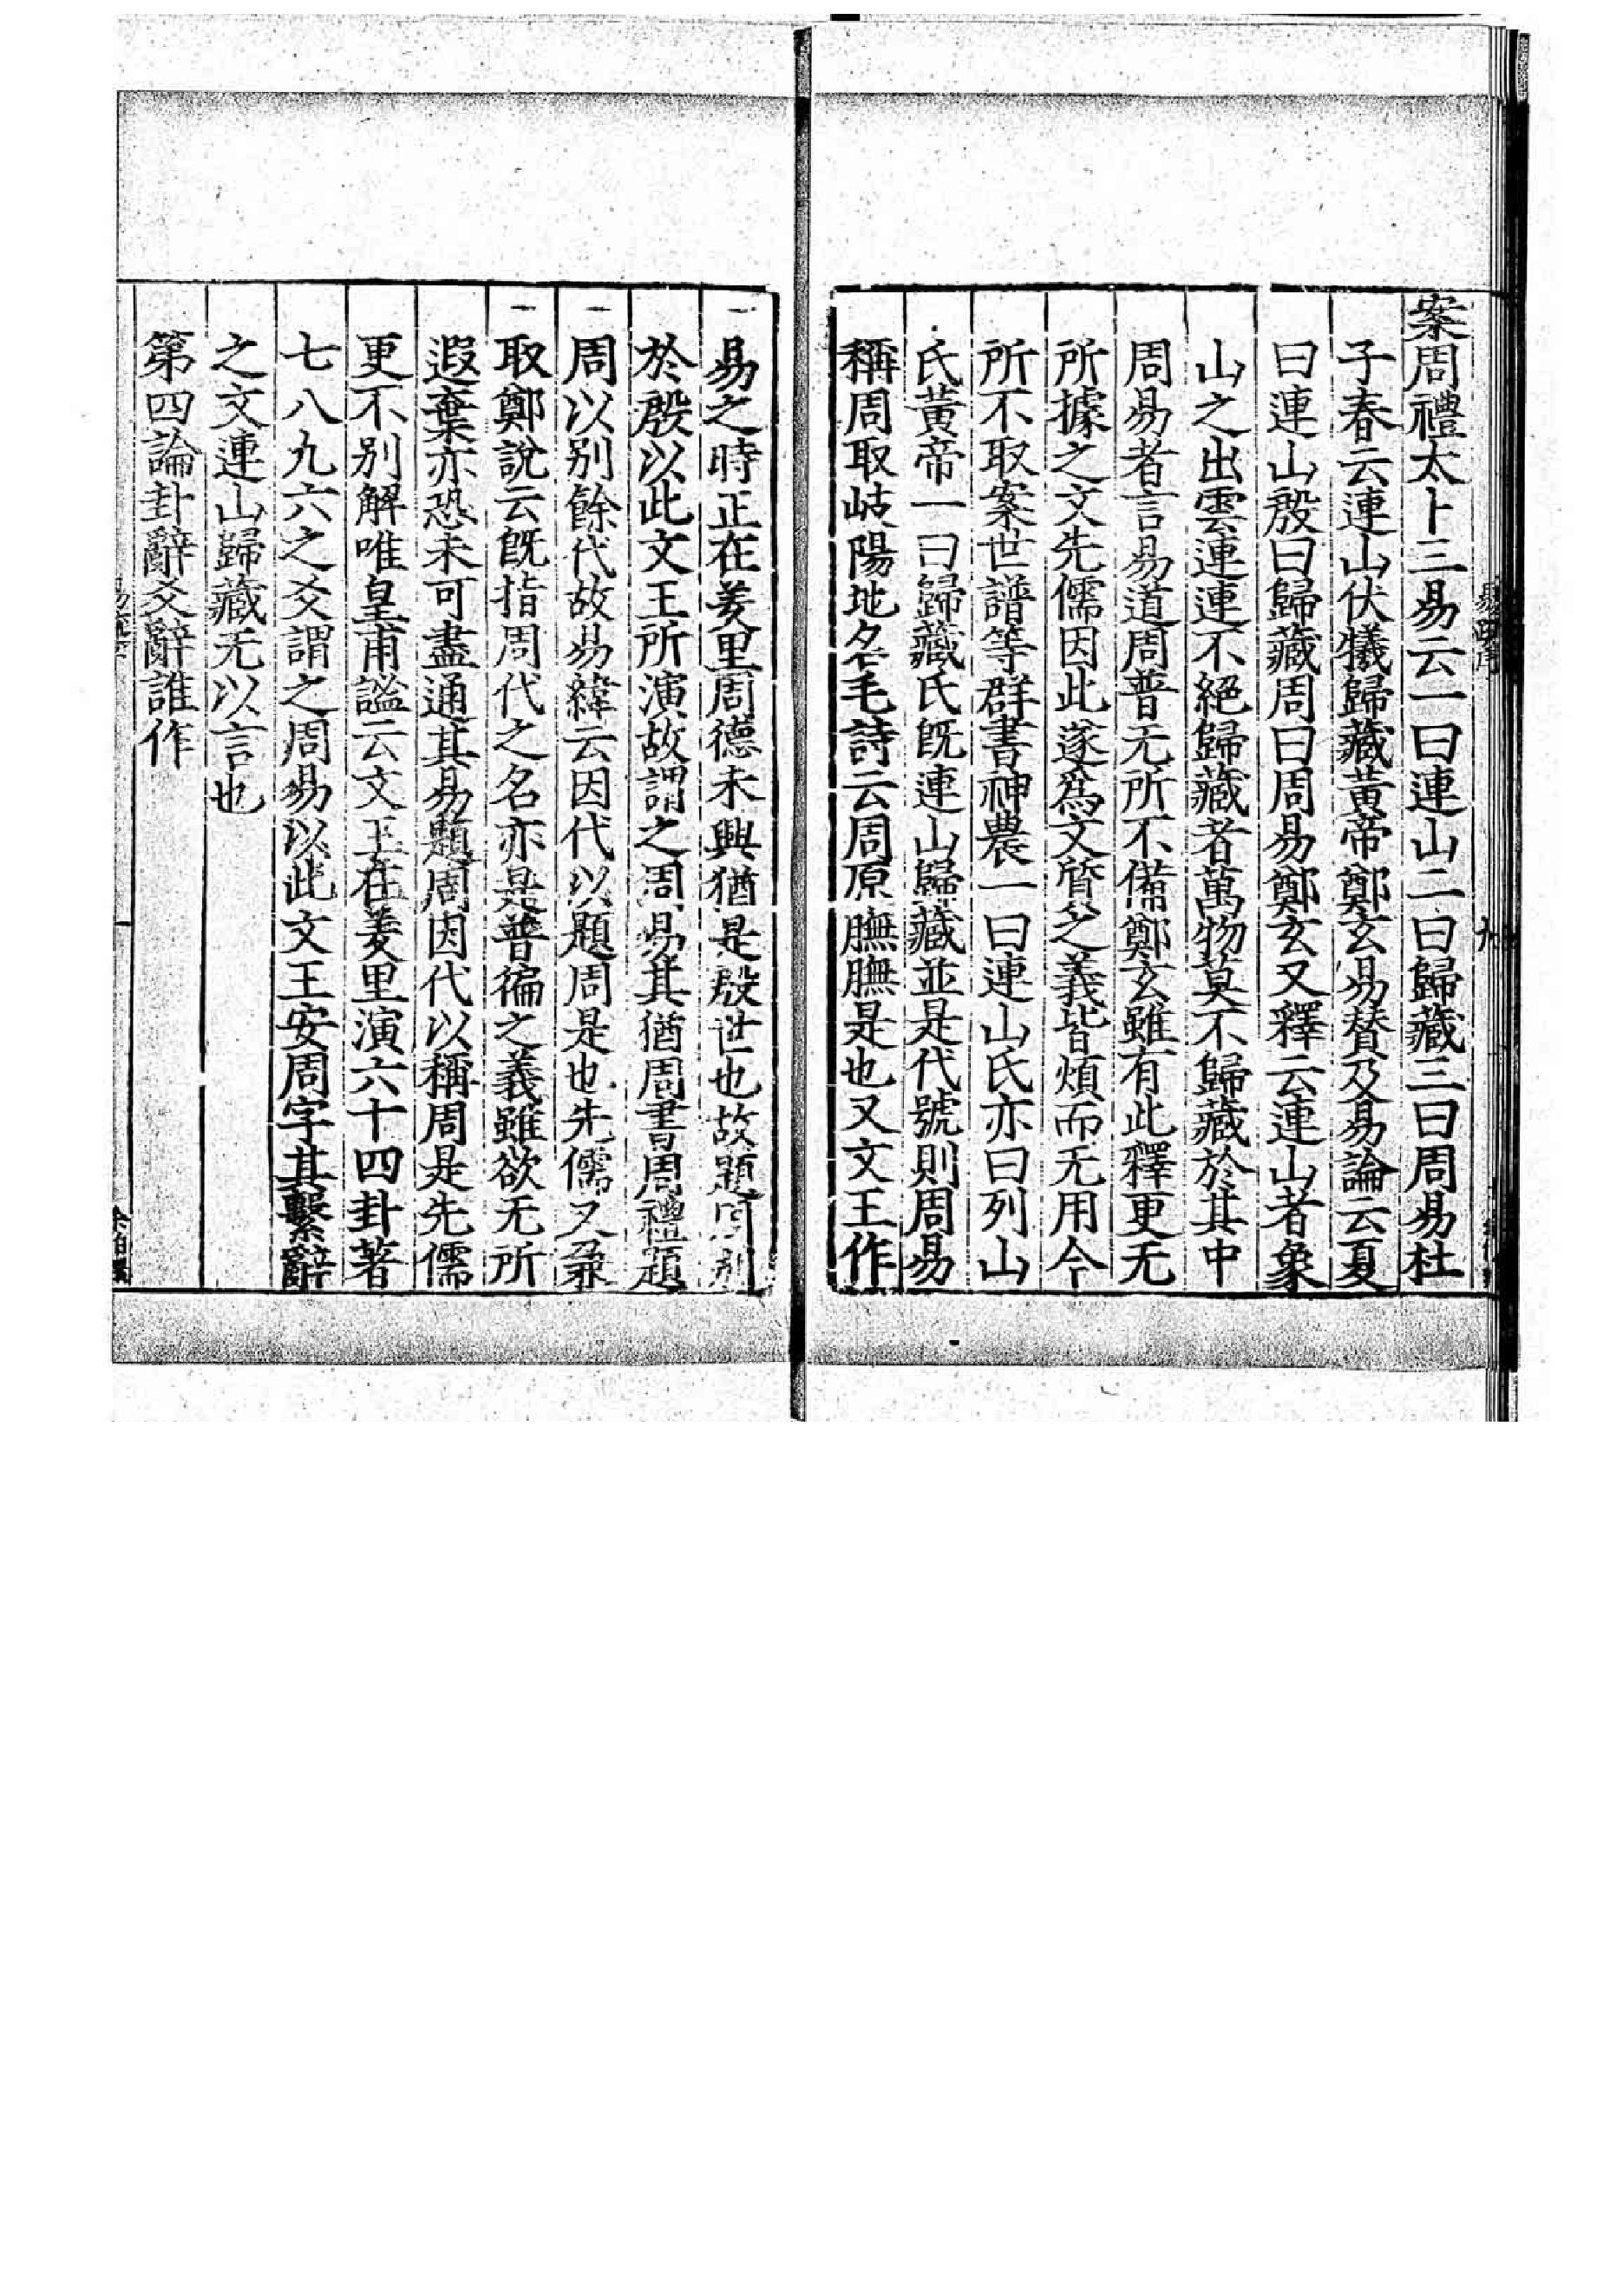 案周禮太卜三易云一曰連山二曰歸藏三曰周易杜
子春云連山伏犧歸藏黃帝鄭玄易賛及易論云夏
曰連山殷曰歸藏周曰周易鄭玄又釋云連山者象
山之出雲連連不絕歸藏者萬物莫不歸藏於其中
周易者言易道周普无所不備鄭玄雖有此釋更无
所據之文先儒因此遂爲文質之義皆煩而无用今
所不取案世譜等群書神農一曰連山氏亦曰列山
氏黃帝一曰歸藏氏旣連山歸藏並是代號則周易
稱周取岐陽地名毛詩云周原膴膴是也又文王作
易之時正在羑里周德未興猶是殷世也故題周别
於殷以此文王所演故謂之周易其猶周書周禮題
周以别餘代故易緯云因代以題周是也先儒又兼
取鄭說云旣指周代之名亦是普徧之義雖欲无所
遐棄亦恐未可盡通其易題周因代以稱周是先儒
更不别解唯皇甫謐云文王在羑里演六十四卦著
七八九六之爻謂之周易以此文王安周字其繫辭
之文連山歸藏无以言也
第四論卦辭爻辭誰作